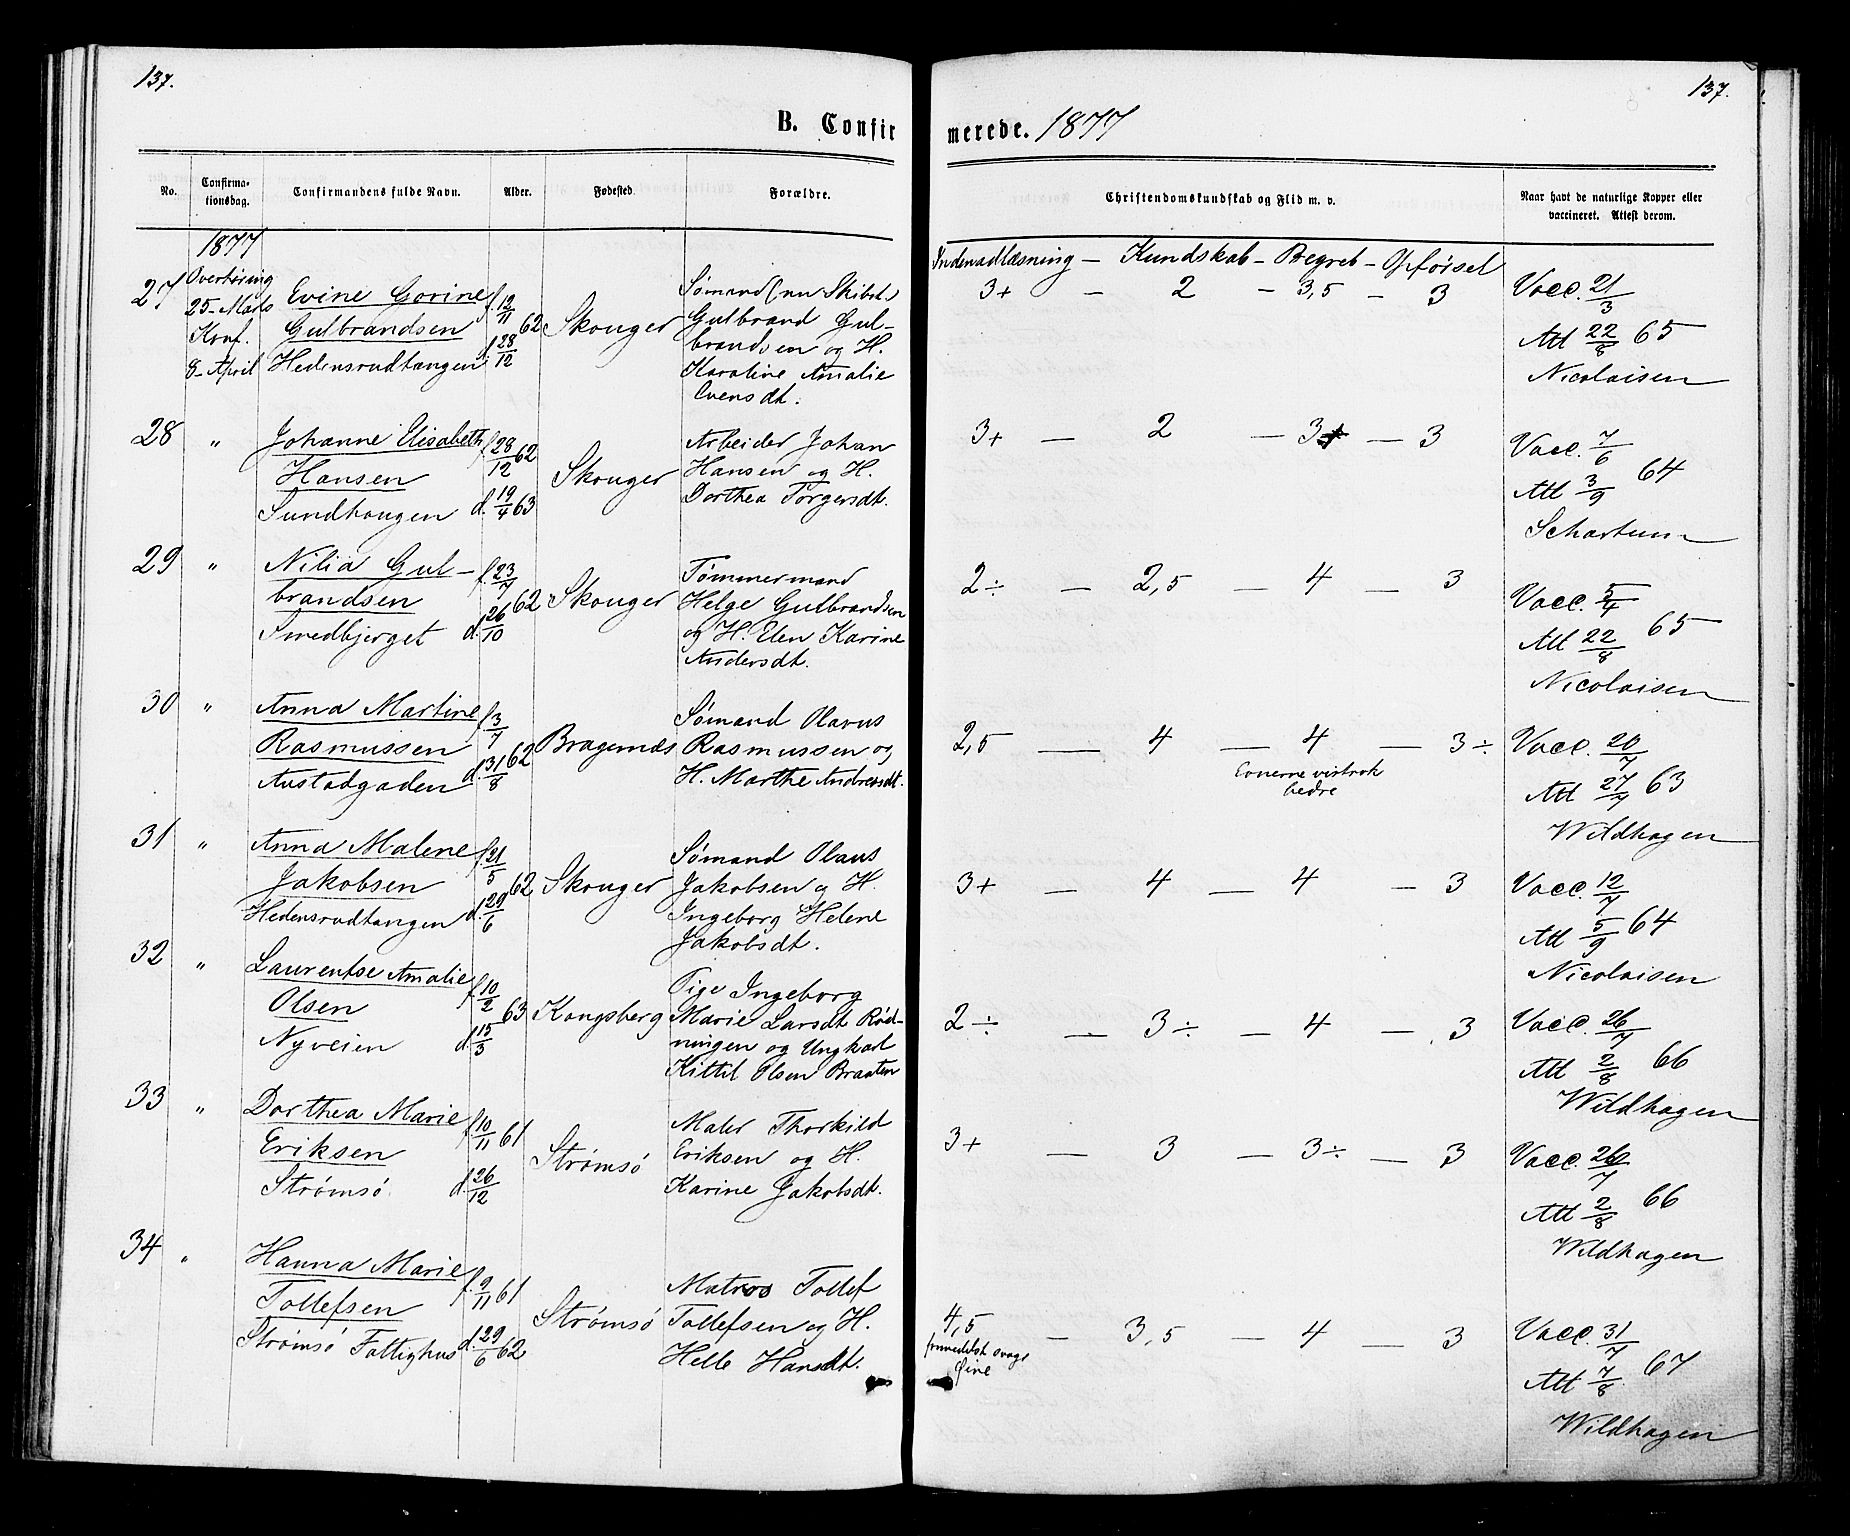 137.
137.
B. Confir
merede. 1877
No.
Confirma-
tionsdag.
Confirmandens fulde Navn.
Alder.
Fødested.
Forældre.
Christendomskundskab og Flid m. v.
Naar havt de naturlige Kopper eller
vaccineret. Attest derom.
1877
Indenadlæsning – Kundskab – Begreb – Opførsel
27
Overhøring
25– Mars
Konf.
8– April
Evine Gorine
Gulbrandsen
Hedensrudtangen
f. 12/11 62
d. 28/12
Skouger
Sømand (nu Skibst.)
Gulbrand Gul-
brandsen og H.
Karoline Amalie
Evensdt.
3+ – 2 – 3,5 – 3
Vacc. 21/3
Att 22/8 65
Nicolaisen
28 "
Johanne Elisabeth
Hansen
Sundhaugen
f. 28/12 62
d. 19/4 63
Skouger
Arbeider Johan
Hansen og H.
Dorthea Torgersdt.
3+ – 2 – 3+ – 3
Vacc. 7/6
Att 3/9 64
Schartum
29 "
Nilia Gul-
brandsen
Smedbjerget
f. 23/7 62
d. 26/10
Skouger
Tømmermand
Helge Gulbrandsen
og H. Elen Karine
Andersdt.
2÷ – 2,5 – 4 – 3
Vacc. 5/4
Att 22/8 65
Nicolaisen
30 "
Anna Martine
Rasmussen
Austadgaden
f. 3/7 62
d. 31/8
Bragernæs
Sømand Olavus
Rasmussen og
H. Marthe Andreasdt.
2,5 – 4 – 4 – 3÷
Evnerne vistnok
bedre
Vacc. 20/7
Att 27/7 63
Wildhagen
31 "
Anna Malene
Jakobsen
Hedensrudtangen
f. 21/5 62
d. 29/6
Skouger
Sømand Olaus
Jakobsen og H.
Ingeborg Helene
Jakobsdt.
3+ – 4 – 4 – 3
Vacc. 12/7
Att 5/9 64
Nicolaisen
32 "
Laurentse Amalie
Olsen
Nyveien
f. 10/2 63
d. 15/3
Kongsberg
Pige Ingeborg
Marie Larsdt Rød-
ningen og Ungkarl
Kittil Olsen Braaten
2÷ – 3÷ – 4 – 3
Vacc. 26/7
Att 2/8 66
Wildhagen
33 "
Dorthea Marie
Eriksen
Strømsø
f. 10/11 61
d. 26/12
Strømsø
Maler Thorkild
Eriksen og H.
Karine Jakobsdt.
3+ – 3 – 3÷ – 3
Vacc. 26/7
Att 2/8 66
Wildhagen
34 "
Hanna Marie
Tollefsen
Strømsø Fattighus
f. 9/11 61
d. 29/6 62
Strømsø
Matros Tollef
Tollefsen og H.
Helle Hansdt.
4,5 – 3,5 – 4 – 3
svage
Øine
Vacc. 31/7
Att 7/8 67
Wildhagen